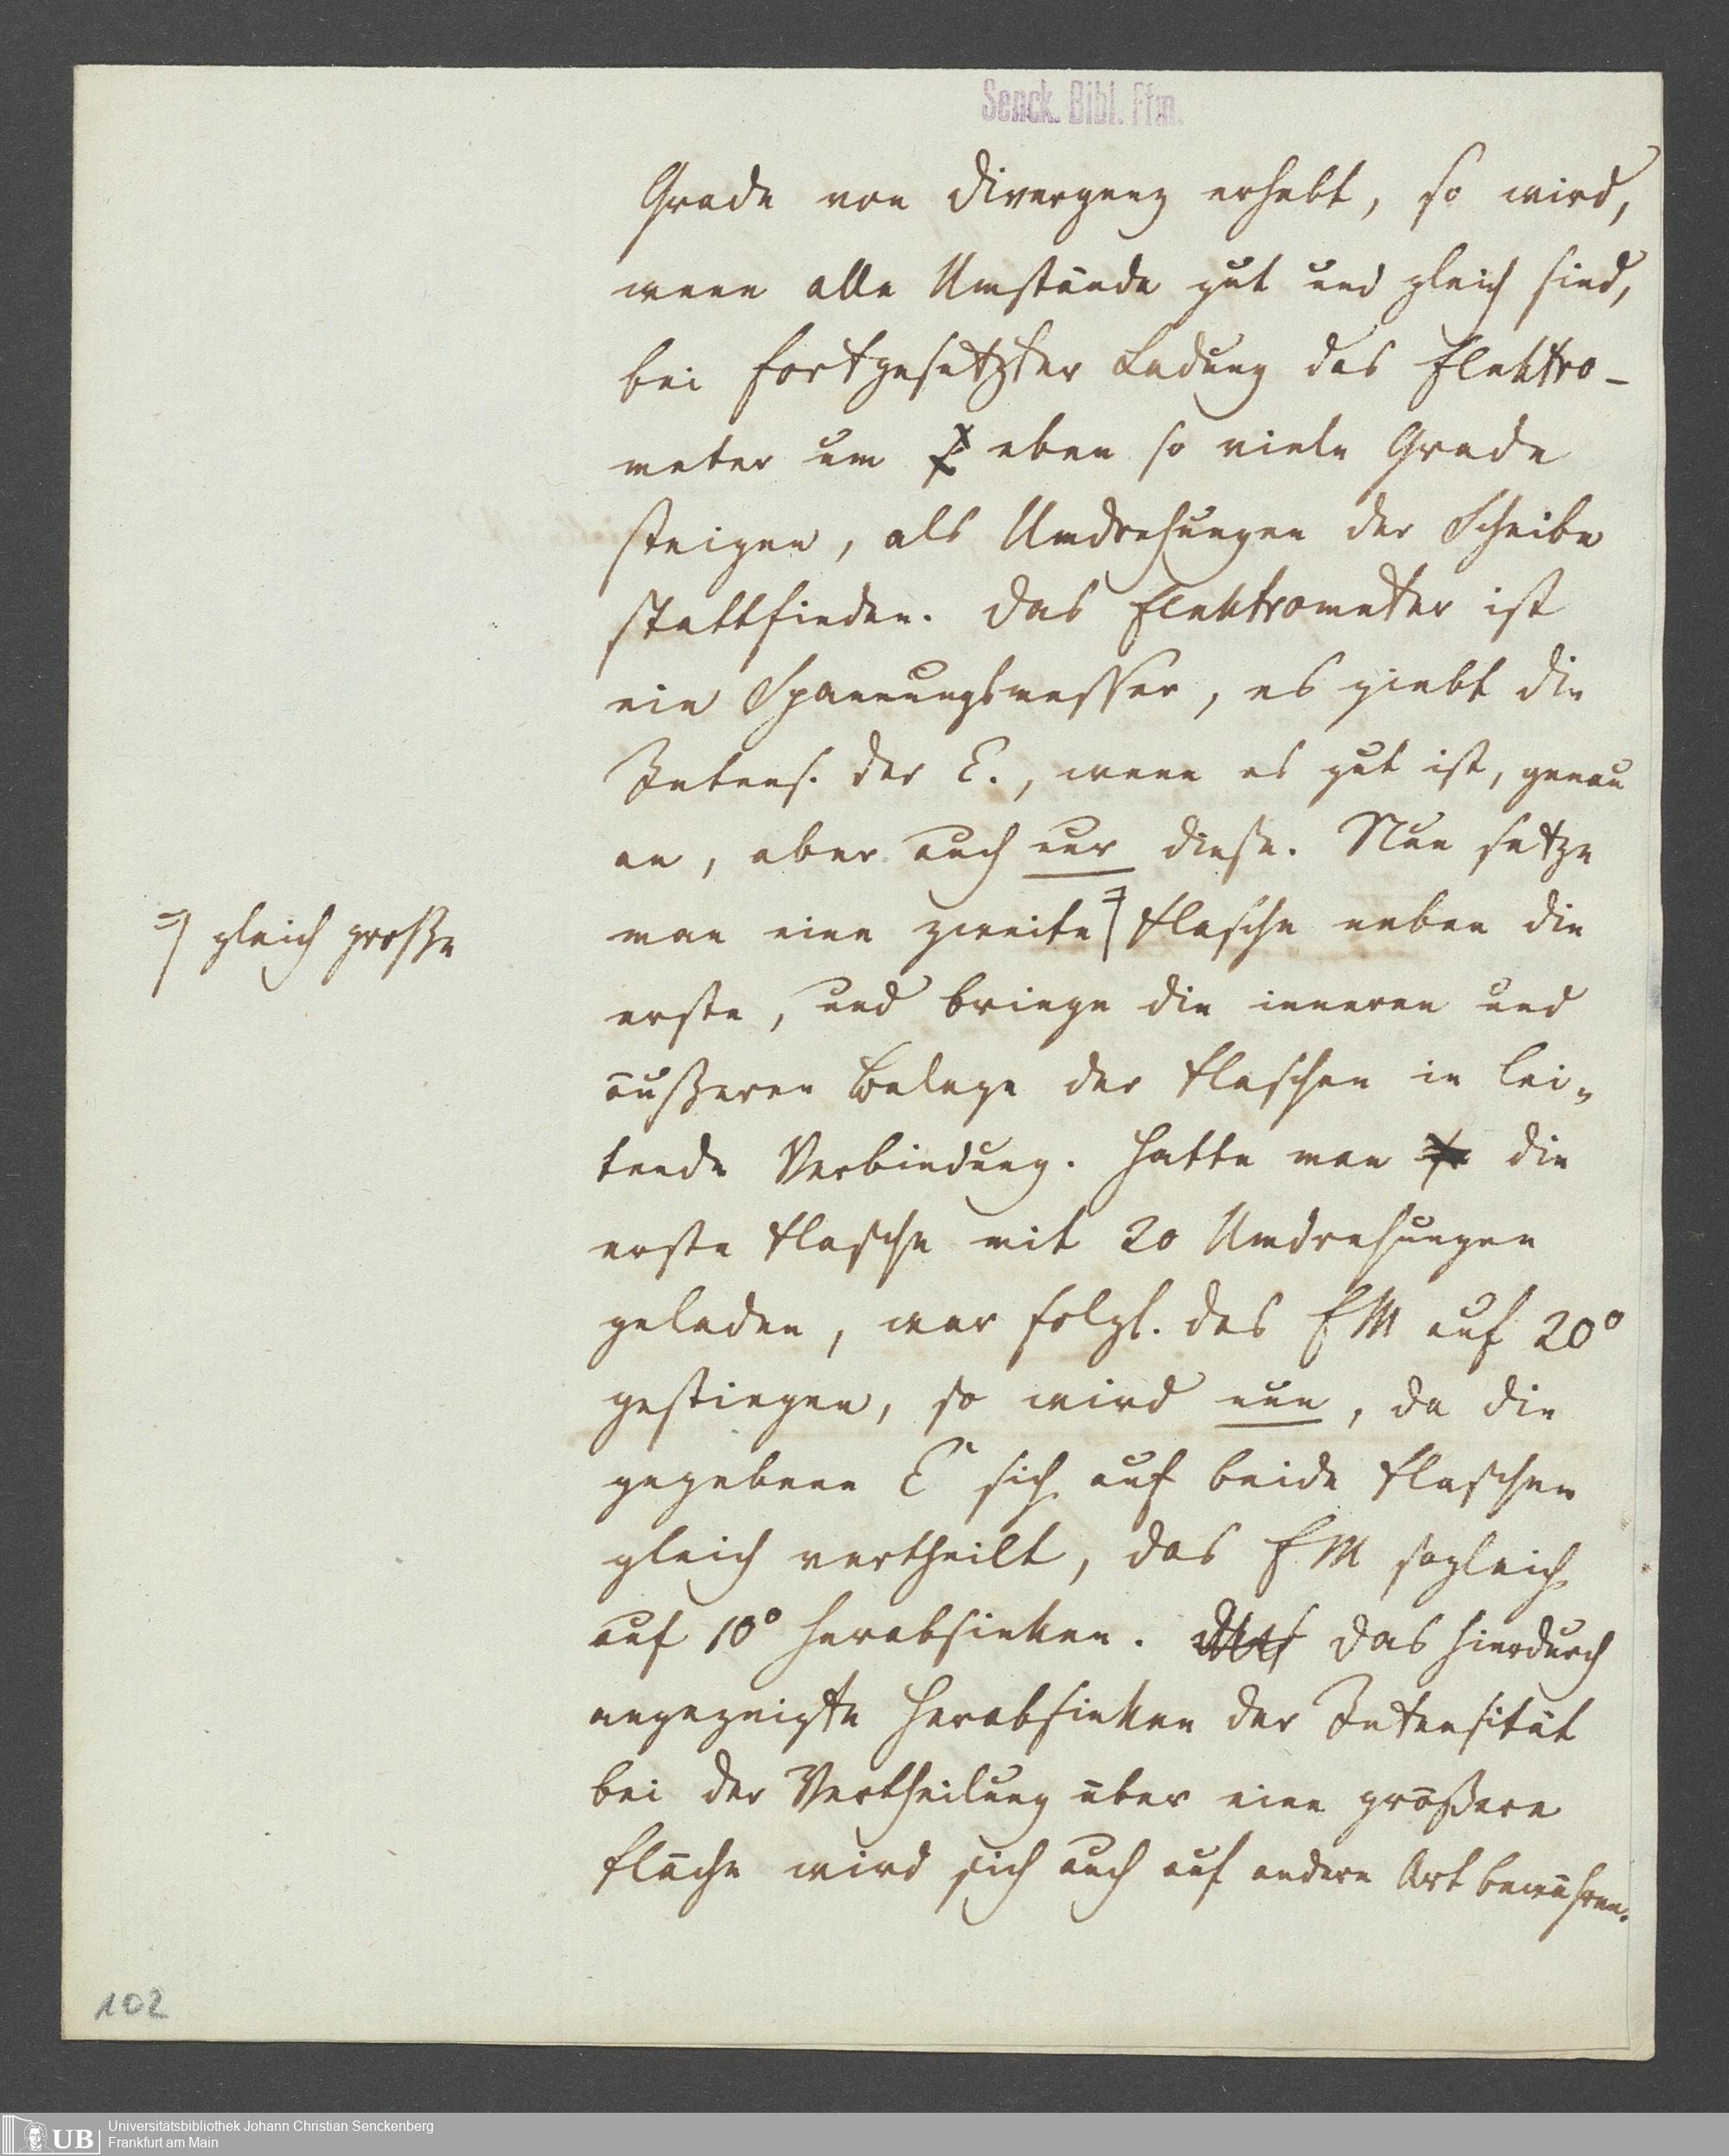 Senck. Bibl. Ffm.
Grade von Divergenz erhebt, so wird,
wenn alle Umstände gut und gleich sind,
bei fortgesetzter Ladung das Elektro-
meter um eben so viele Grade
steigen, als Umdrehungen der Scheibe
stattfinden. Das Elektrometer ist
ein Spannungsmesser, es giebt die
Intens. der E., wenn es gut ist, genau
an, aber auch nur diese. Nun setze
man eine zweite =) Flasche neben die
=) gleich große
erste, und bringe die inneren und
äußeren Belege der Flaschen in lei-
tende Verbindung. Hatte man die
erste Flasche mit 20 Umdrehungen
geladen, war folgl. das EM auf 20°
gestiegen, so wird nun, da die
gegebene E sich auf beide Flaschen
gleich vertheilt, das EM sogleich
auf 10° herabsinken. Das hierdurch
angezeigte Herabsinken der Intensität
bei der Vertheilung über eine größere
Fläche wird sich auch auf andere Art bewähren.
102
UB
Universitätsbibliothek Johann Christian Senckenberg
Frankfurt am Main